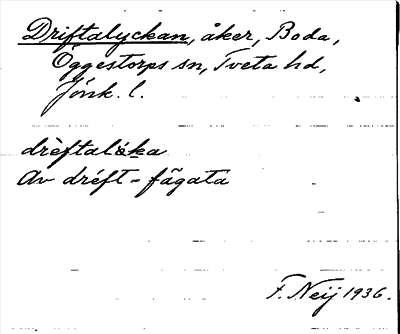 Driftalyckan, åker, Boda,
Öggestorps sn, Tveta hd,
Jönk. l.
drèftalöka
Av dréft - fägata
F. Neij 1936.